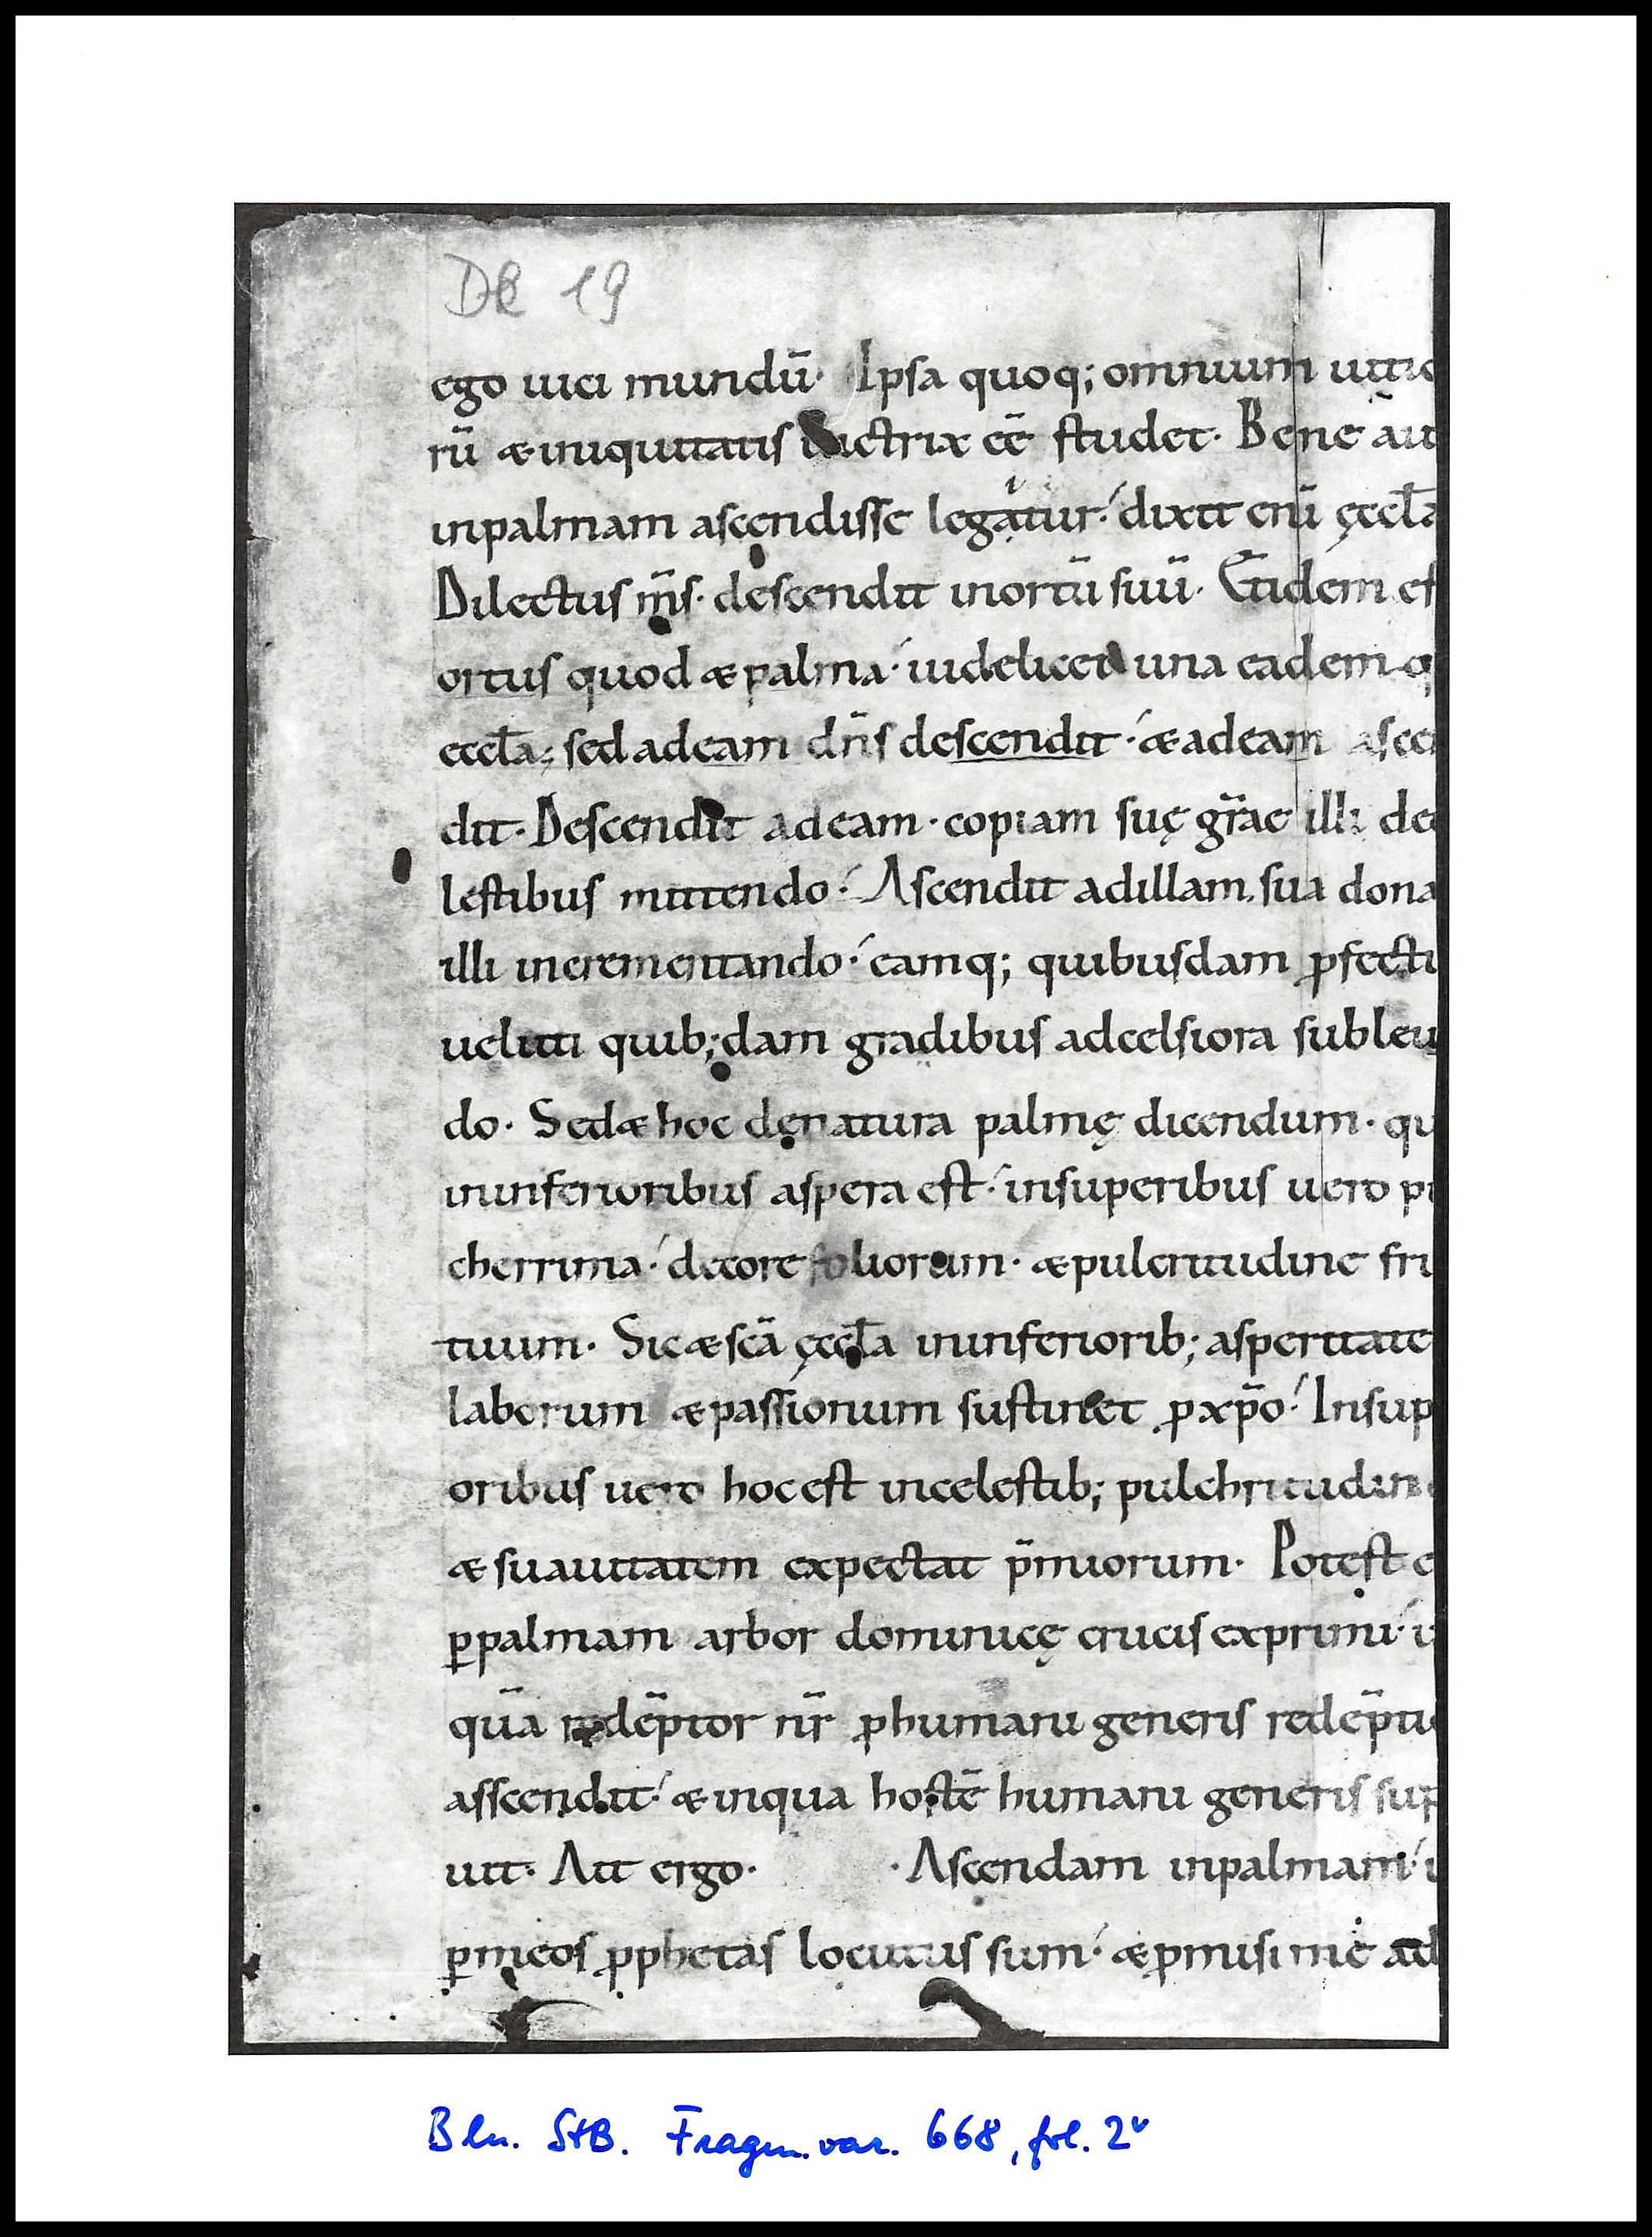 DR 19
ego uici mundū· Ipsa quoq; omnium uitio
rū & iniquitatis uictrix eē studet· Bene aūt
inpalmam ascendisse legitur· dixit enī ęccl̄a
Dilectus m̄s· descendit inortū suū· Et idem es
ortus quod & palma· uidelicet una eadem q
eccl̄a; sed adeam dn̄s descendit· & adeam ascen
dit· Descendit adeam· copiam suę gr̄ae illi de ce
lestibus mittendo· Ascendit adillam sua dona
illi incrementando· eamq; quibusdam ꝓfecti
ueluti quib;dam gradibus adcelsiora subleu
do· Sed & hoc denatura palmę dicendum· qu
ininferioribus aspera est· insuperibus uero pu
cherrima· decore foliorum· & pulcritudine fru
tuum· Sic & sc̄a ęccl̄a ininferiorib; asperitate
laborum & passionum sustinet ꝓ xp̄o· Insup
oribus uero hoc est incelestib; pulchritudine
& suauitatem expectat p̄miorum· Potest e
ꝑ palmam arbor dominicę crucis exprimi· i
quā redēptor nr̄ ꝓ humani generis redēptio
asscendit· & inqua hostē humani generis sup
uit· Ait ergo· · Ascendam inpalmam· i
ꝑ meos ꝓphetas locutus sum· & ꝓmisi me ad
Bln. StB. Fragm. var. 668, fol. 2v